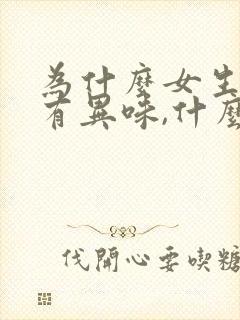 為什麼女生
有異味,什麼
伐開心要喫糖